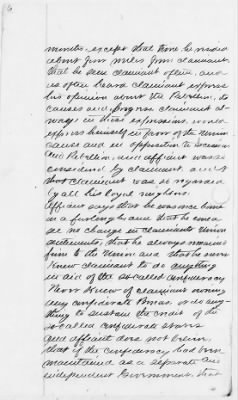 6
months, except that time he resided
about four miles from claimant,
that he seen claimant often, and
as often heard claimant express
his opinion about the Rebellion, its
causes and progress claimant al-
ways in those expressions would
express himself in favor of the Union
cause and in opposition to secession
and Rebellion, and affiant was so
considered by claimant and
that claimant was so regarded
by all his loyal neighbors
Affiant says that he was once time
in a furlough and that he could
see no change in claimants Union
sentiments, that he always remained
firm to the Union and that he never
knew claimant to do anything
in aid of the so-called confederacy
Never knew of claimant owning
any confederate Bonds or do any-
thing to sustain the credit of the
so-called confederate states
and affiant does not believe
that if the confederacy had been
maintained as a separate and
independent Government, that